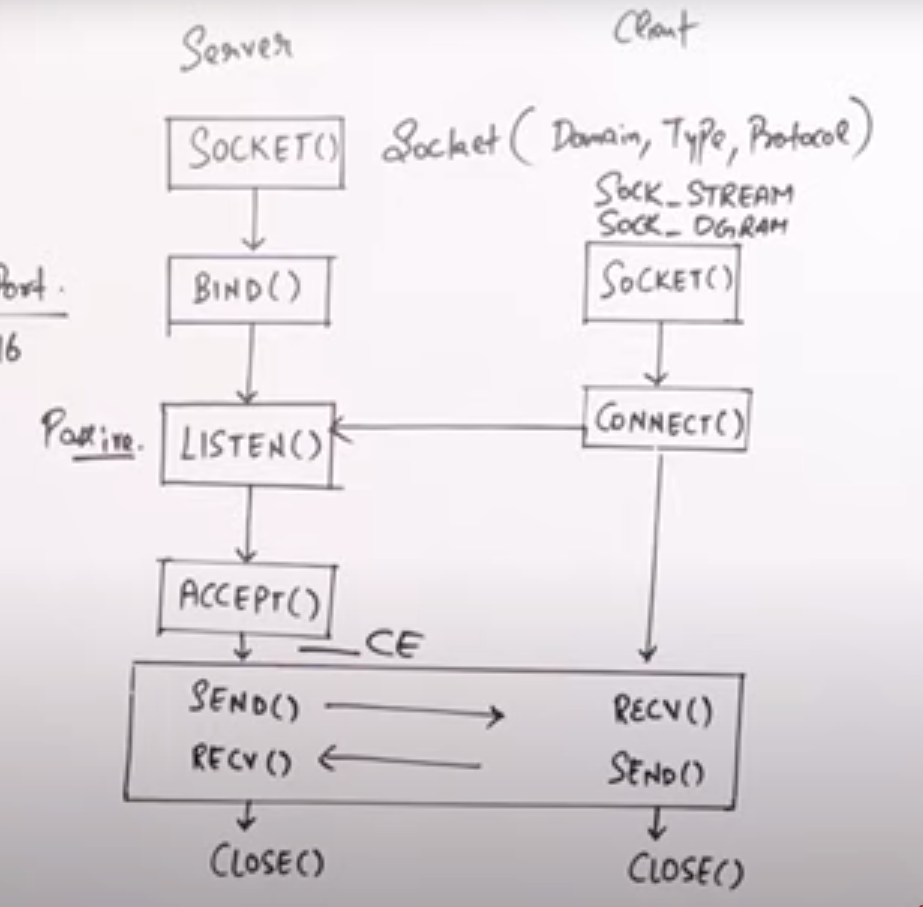 Server
Client
SOCKET()
Socket( Domain, Type, Protocol)
SOCK_STREAM
SOCK_DGRAM
BIND()
SOCKET()
Port.
16
Passive.
LISTEN()
CONNECT()
ACCEPT()
CE
SEND()
RECV()
RECV()
SEND()
CLOSE()
CLOSE()